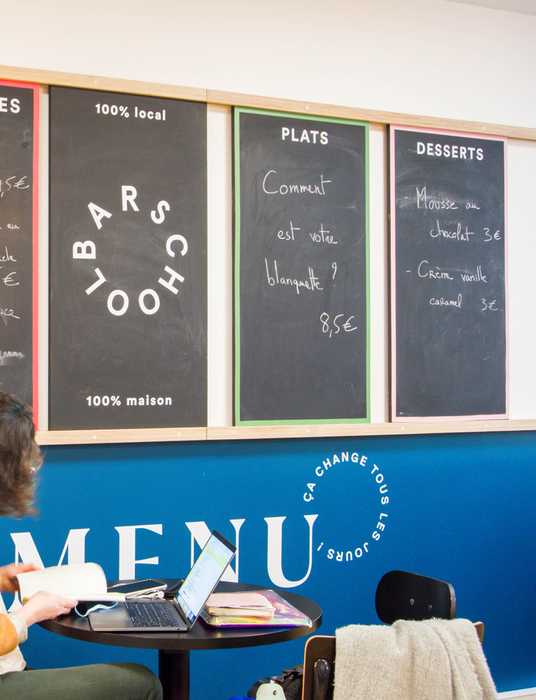 ES
5€
€
100% local
BARSCHOOL
100% maison
PLATS
Comment
est votre
blanquette ?
8,5€
DESSERTS
Mousse au
chocolat 3€
- Crèm vanille
caramel 3€
MENU
ÇA CHANGE TOUS LES JOURS !